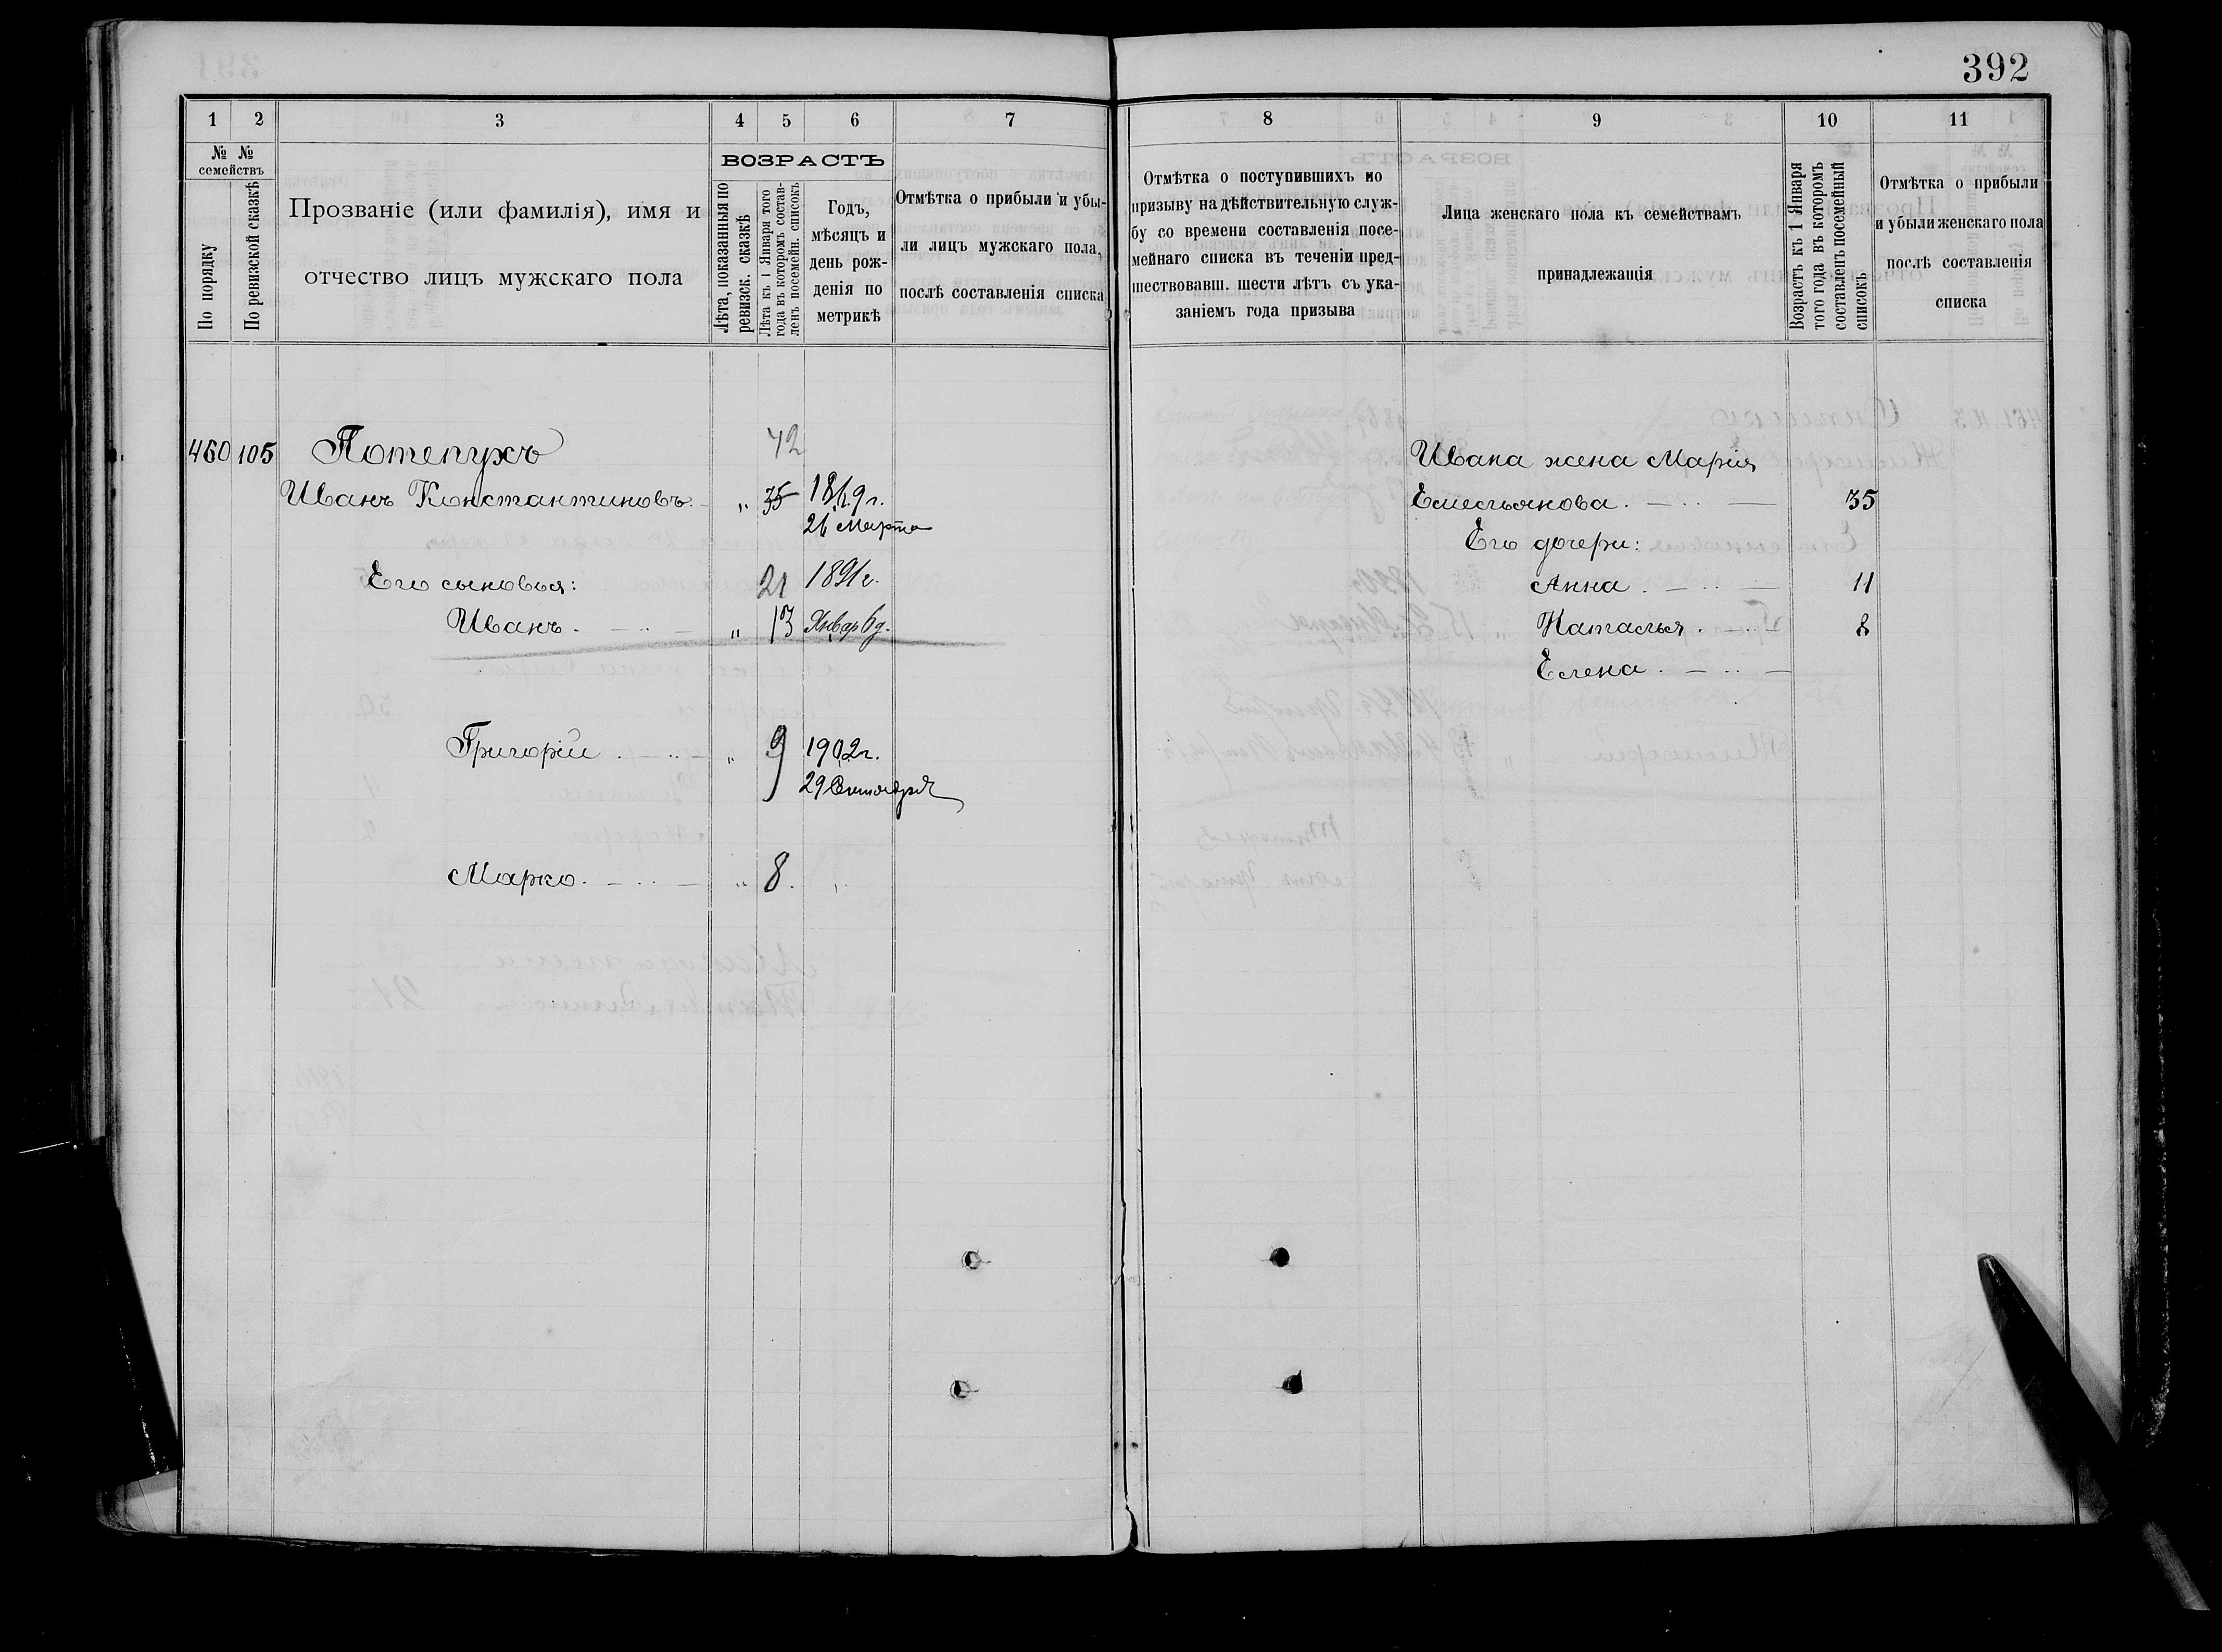 392
1 2 3 4 5 6 7
№ № семействъ
По порядку
По ревизской сказкѣ
Прозваніе (или фамилія), имя и
отчество лицъ мужскаго пола
ВОЗРАСТЪ
Лѣта, показанныя по
ревизск. сказкѣ
Лѣта къ 1 Января того
года въ которомъ состав-
ленъ посемейн. списокъ
Годъ,
мѣсяцъ и
день рож-
денія по
метрикѣ
Отмѣтка о прибыли и убы-
ли лицъ мужскаго пола,
послѣ составленія списка
8 9 10 11
Отмѣтка о поступившихъ по
призыву на дѣйствительную служ-
бу со времени составленія посе-
мейнаго списка въ теченіи пред-
шествовавш. шести лѣтъ съ ука-
заніемъ года призыва
Лица женскаго пола къ семействамъ
принадлежащія
Возрастъ къ 1 Января
того года въ которомъ
составленъ посемейный
списокъ
Отмѣтка о прибыли
и убыли женскаго пола
послѣ составленія
списка
460 105 Потепухъ 42
Иванъ Константиновъ. „ 35 1869 г.
26 Марта
Его сыновья: 21 1891 г.
Иванъ . — .. — „ 13 Январ 6 д.
Григорій . — .. — „ 9 1902 г.
29 Сентября
Марко. — .. — „ 8. „
Ивана жена Марія
Емельянова . — .. — 35
Его дочери:
Анна . — .. — 11
Наталья . — .. — 8
Елена . — .. —